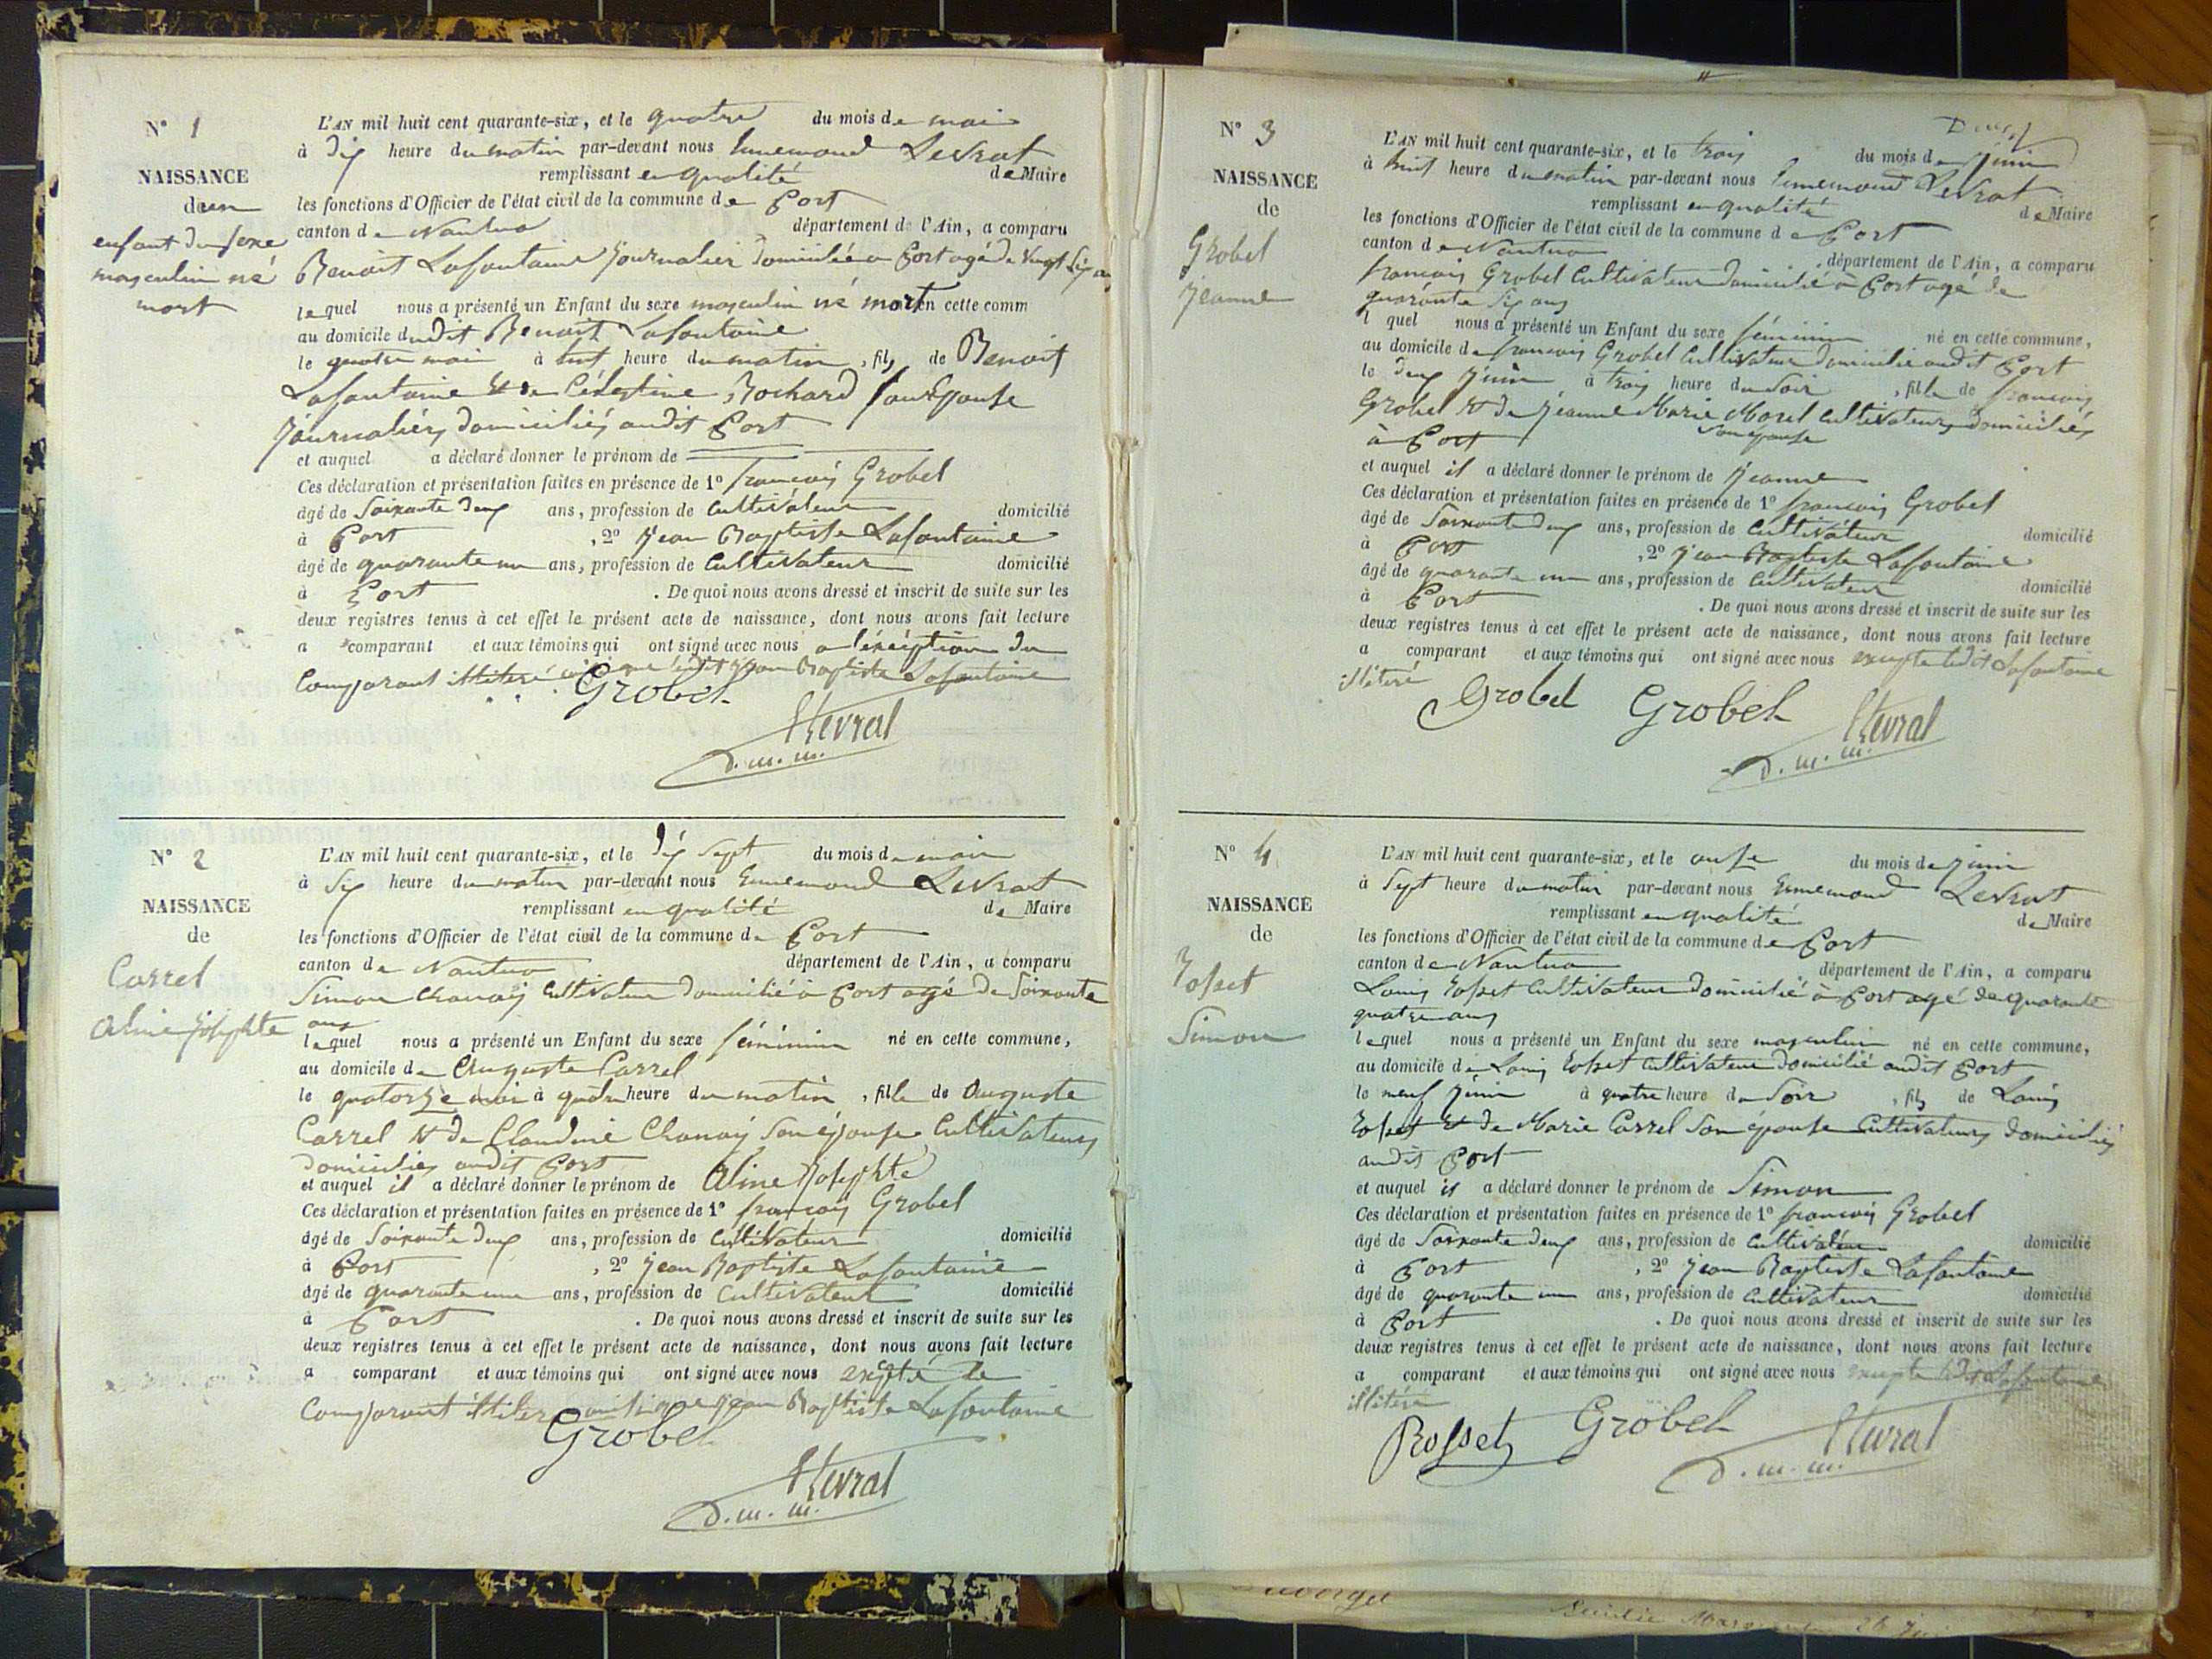 N° 1
NAISSANCE
d'un
enfant du sexe
masculin né
mort
L'AN mil huit cent quarante-six, et le quatre du mois de mai
à dix heure du matin par-devant nous Ennemond Levrat
remplissant en qualité de Maire
les fonctions d'Officier de l'état civil de la commune de Port
canton de Nantua département de l'Ain, a comparu
Benoit Lafontaine journalier domicilié à Port agé de vingt six ans
lequel nous a présenté un Enfant du sexe masculin né mort en cette comm
au domicile dudit Benoit Lafontaine
le quatre mai à huit heure du matin, fils de Benoit
Lafontaine et de Célestine Rochard son épouse
journaliers domiciliés audit Port
et auquel a déclaré donner le prénom de
Ces déclaration et présentation faites en présence de 1° francois Grobel
âgé de Soixante deux ans, profession de Cultivateur domicilié
à Port, 2° Jean Baptiste Lafontaine
âgé de quarante un ans, profession de Cultivateur domicilié
à Port. De quoi nous avons dressé et inscrit de suite sur les
deux registres tenus à cet effet le présent acte de naissance, dont nous avons fait lecture
a comparant et aux témoins qui ont signé avec nous a l'exception du
Comparant illiteré Jean Baptiste Lafontaine
Grobel
Levrat
D. m. m.
N° 2
NAISSANCE
de
Carrel
Aline Josephte
L'AN mil huit cent quarante-six, et le dix sept du mois de mai
à six heure du matin par-devant nous Ennemond Levrat
remplissant en qualité de Maire
les fonctions d'Officier de l'état civil de la commune de Port
canton de Nantua département de l'Ain, a comparu
Simon Chanay Cultivateur domicilié à Port agé de Soixante
ans
lequel nous a présenté un Enfant du sexe féminin né en cette commune,
au domicile de Auguste Carrel
le quatorze mai à quatre heure du matin, fille de Auguste
Carrel et de Claudine Chanay son épouse Cultivateurs
domiciliés audit Port
et auquel il a déclaré donner le prénom de Aline Josephte
Ces déclaration et présentation faites en présence de 1° françois Grobel
âgé de Soixante deux ans, profession de Cultivateur domicilié
à Port, 2° Jean Baptiste Lafontaine
âgé de quarante un ans, profession de Cultivateur domicilié
à Port. De quoi nous avons dressé et inscrit de suite sur les
deux registres tenus à cet effet le présent acte de naissance, dont nous avons fait lecture
a comparant et aux témoins qui ont signé avec nous excepté le
Comparant illiteré ainsi que Jean Baptiste Lafontaine
Grobel
Levrat
D. m. m.
N° 3
NAISSANCE
de
Grobel
Jeanne
L'AN mil huit cent quarante-six, et le trois du mois de Juin
à huit heure du matin par-devant nous Ennemond Levrat
remplissant en qualité de Maire
les fonctions d'Officier de l'état civil de la commune de Port
canton de Nantua département de l'Ain, a comparu
francois Grobel Cultivateur domicilié à Port agé de
quarante six ans
l quel nous a présenté un Enfant du sexe féminin né en cette commune,
au domicile de francois Grobel Cultivateur domicilié audit Port
le deux Juin à trois heure du soir, fille de francois
Grobel et de Jeanne Marie Morel Cultivateurs domiciliés
à Port son épouse
et auquel il a déclaré donner le prénom de Jeanne
Ces déclaration et présentation faites en présence de 1° francois Grobel
âgé de Soixante deux ans, profession de Cultivateur domicilié
à Port, 2° Jean Baptiste Lafontaine
âgé de quarante un ans, profession de Cultivateur domicilié
à Port. De quoi nous avons dressé et inscrit de suite sur les
deux registres tenus à cet effet le présent acte de naissance, dont nous avons fait lecture
a comparant et aux témoins qui ont signé avec nous excepté ledit Lafontaine
illiteré
Grobel Grobel Levrat
D. m. m.
N° 4
NAISSANCE
de
Rosset
Simon
L'AN mil huit cent quarante-six, et le onze du mois de Juin
à Sept heure du matin par-devant nous Ennemond Levrat
remplissant en qualité de Maire
les fonctions d'Officier de l'état civil de la commune de Port
canton de Nantua département de l'Ain, a comparu
Louis Rosset Cultivateur domicilié à Port agé de quarante
quatre ans
lequel nous a présenté un Enfant du sexe masculin né en cette commune,
au domicile de Louis Rosset Cultivateur domicilié audit Port
le neuf Juin à quatre heure du Soir, fils de Louis
Rosset et de Marie Carrel son épouse Cultivateurs domiciliés
audit Port
et auquel il a déclaré donner le prénom de Simon
Ces déclaration et présentation faites en présence de 1° francois Grobel
âgé de Soixante deux ans, profession de Cultivateur domicilié
à Port, 2° Jean Baptiste Lafontaine
âgé de quarante un ans, profession de Cultivateur domicilié
à Port. De quoi nous avons dressé et inscrit de suite sur les
deux registres tenus à cet effet le présent acte de naissance, dont nous avons fait lecture
a comparant et aux témoins qui ont signé avec nous excepté ledit Lafontaine
illiteré
Rosset Grobel Levrat
D. m. m.